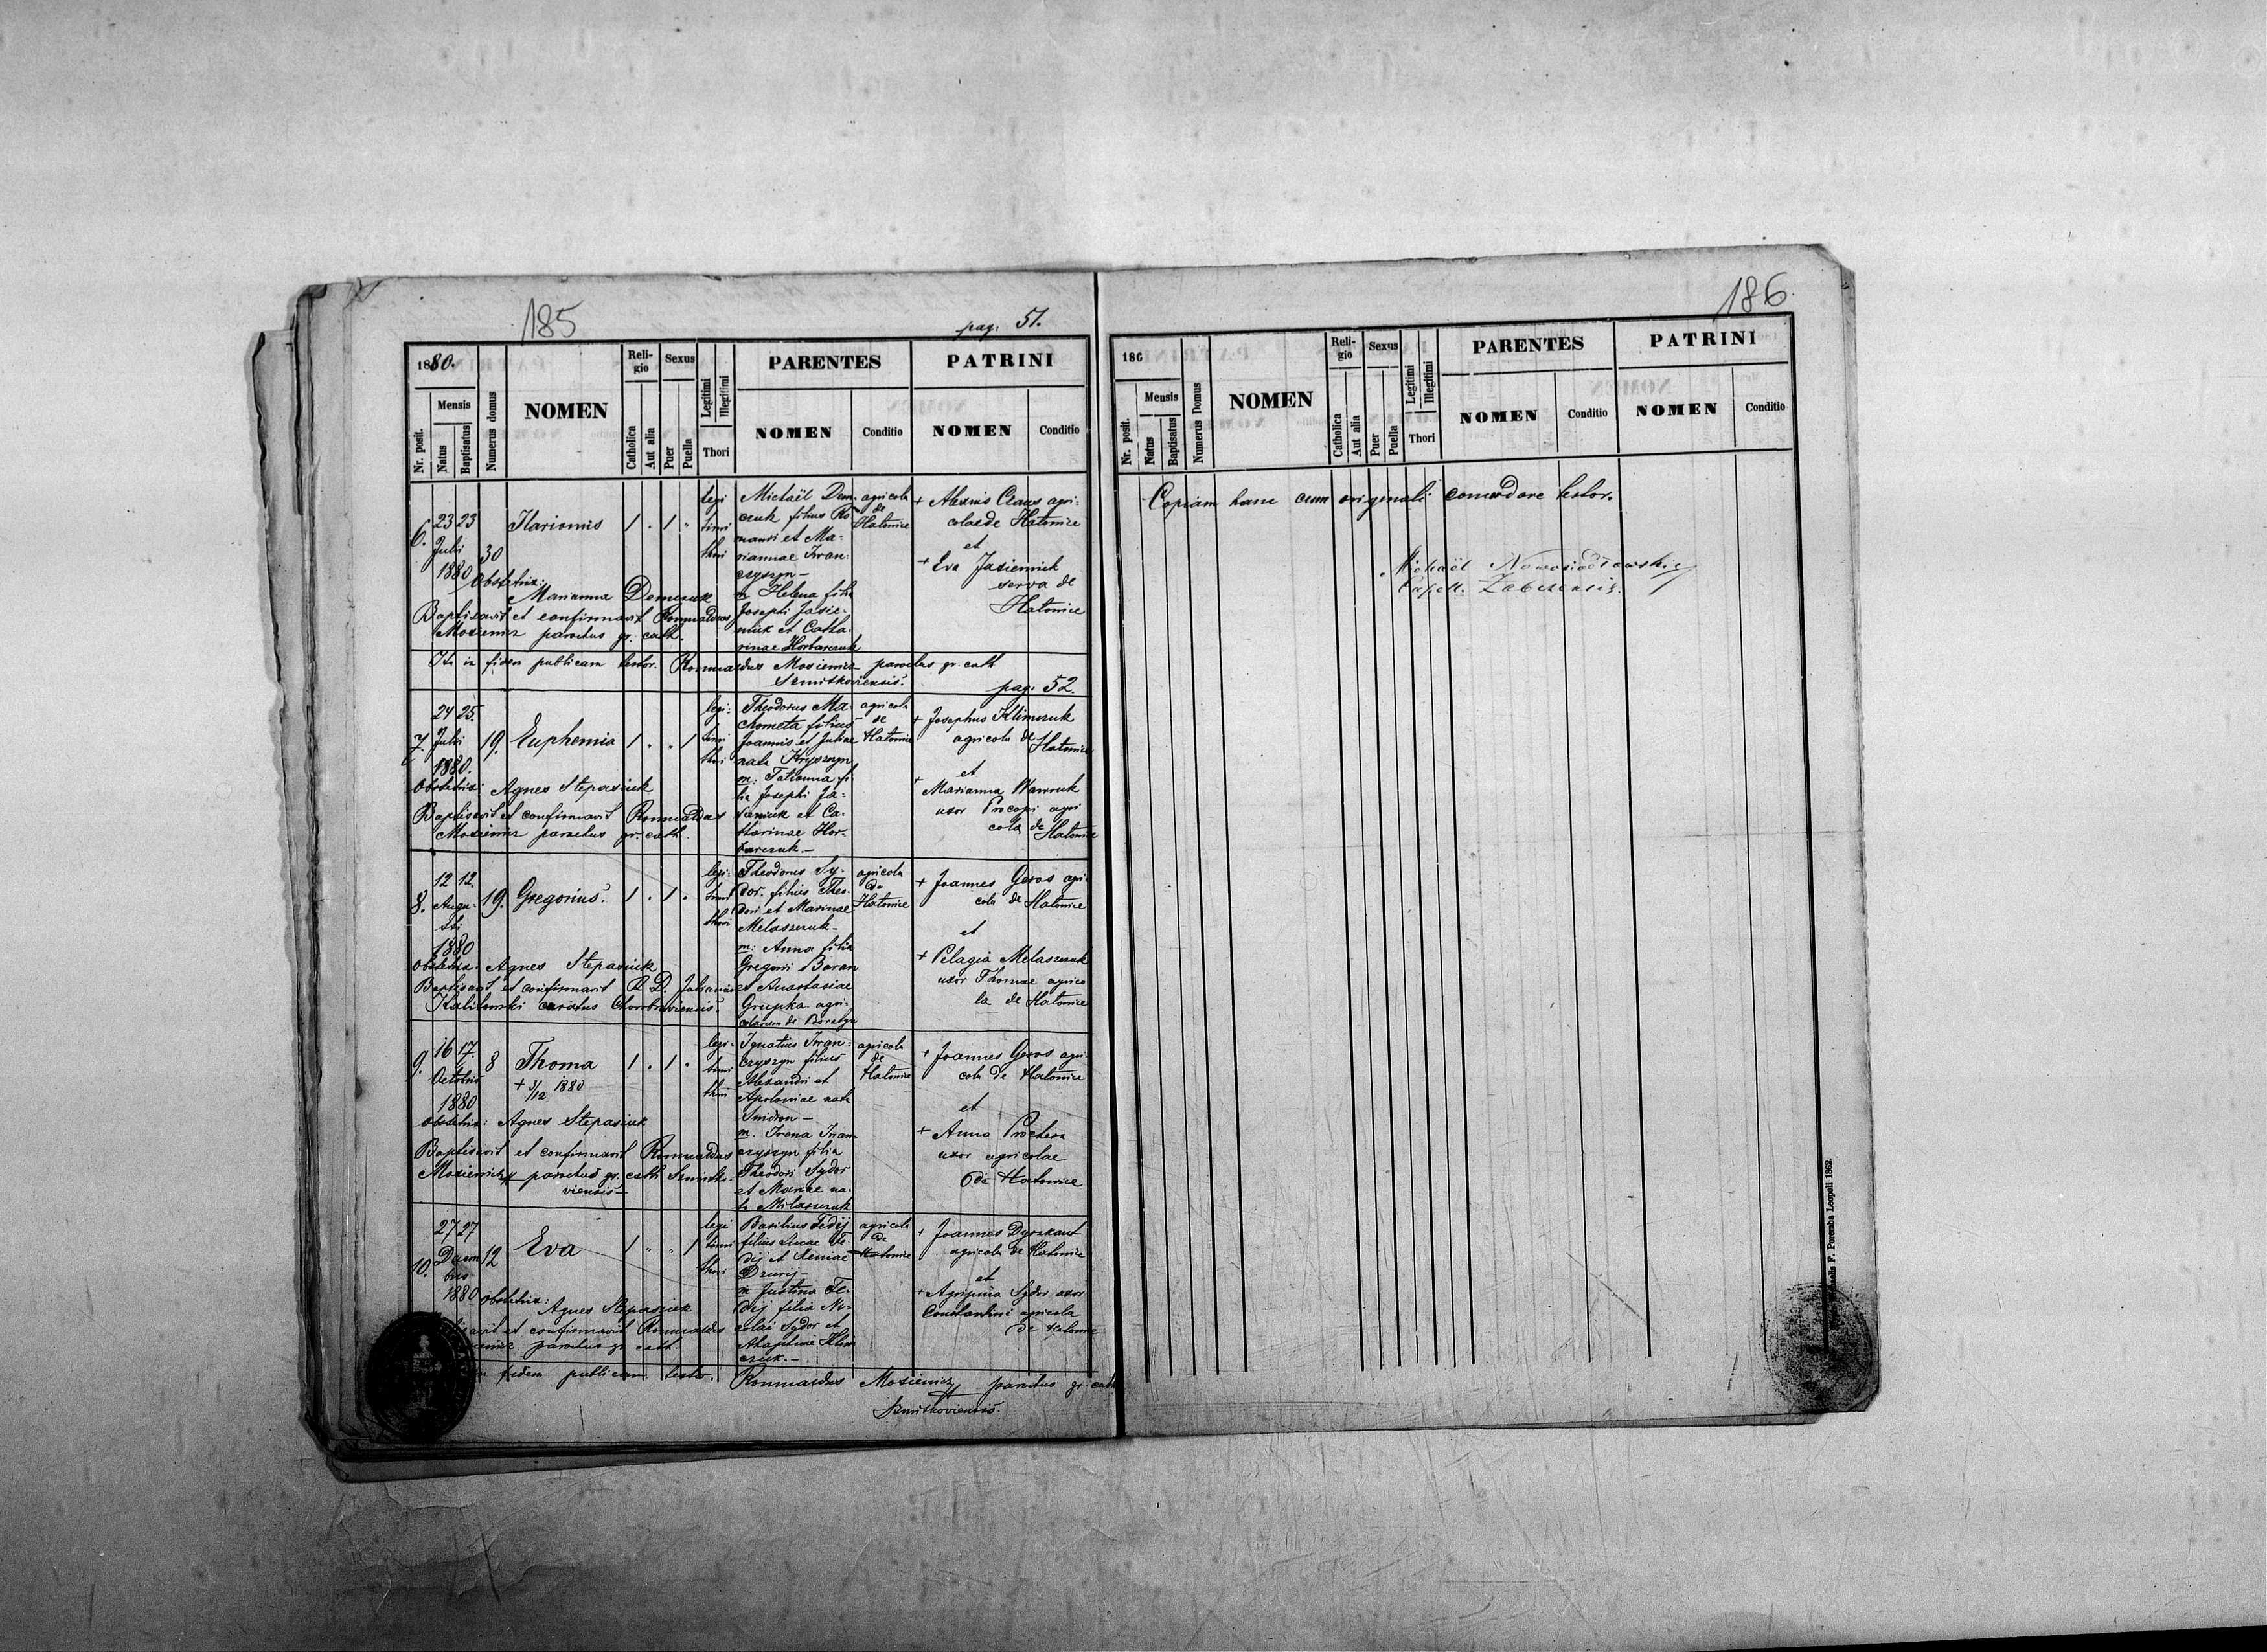 185
pag. 51.
1880.
Nr. posit.
Mensis
Natus
Baptisatus
Numerus domus
NOMEN
Religio
Catholica
Aut alia
Sexus
Puer
Puella
Legitimi
Illegitimi
Thori
PARENTES
NOMEN
Conditio
PATRINI
NOMEN
Conditio
6.
23 23
Julii
1880
30
Ilarionis
1 . 1 "
legi
timi
thori
Michaël Dem-
czuk filius Ro
mani et Ma-
riannae Iwan-
czyszyn -
m Helena filia
Josephi Jasie-
niuk et Catha-
rinae Horbarczuk
agricola
de
Hatowice
+ Alexius Claus agri-
colae de Hatowice
et
+ Eva Jasieniuk
serva de
Hatowice
Obstetrix:
Marianna Demczuk
Baptisavit et confirmavit Romualdus
Mosiewicz parochus gr. cath.
Ita in fidem publicam testor. Romualdus Mosiewicz parochus gr. cath
Szmitkoviensis.
pag. 52.
7.
24 25.
Julii
1880.
19.
Euphemia
1 . . 1
legi-
timi
thori
Theodorus Ma-
chometa filius
Joannis et Juliae
nata Hryszyn
m: Tatianna fi-
lia Josephi Ja-
siniuk et Ca-
tharinae Hor-
barczuk.-
agricola
de
Hatowice
+ Josephus Klimczuk
agricola de Hatowice
et
+ Marianna Wawruk
uxor Procopi agri
cola de Hatowice
Obstetrix: Agnes Stepasiuk
Baptisavit et confirmavit Romualdus
Mosiewicz parochus gr. cath.
8.
12 12.
Augu-
sti
1880
19.
Gregorius.
1 . 1 .
legi-
timi
thori
Theodorus Sy-
dor, filius Theo-
dori et Marinae
Melaszczuk-
m: Anna filia
Gregorii Baran
et Anastasiae
Grupka agri-
colarum de Boratyn
agricola
de
Hatowice
+ Joannes Geros agri
cola de Hatowice
et
+ Pelagia Melaszczuk
uxor Thomae agrico
la de Hatowice
Obstetrix. Agnes Stepasiuk
Baptisavit et confirmavit R. D. Julianus
Kalitowski curatus Chorobroviensis.
9.
16 17.
Octobris
1880
8
Thoma
+ 3/12 1880
1 . 1 .
legi-
timi
thori
Ignatius Iwan-
czyszyn filius
Alexandri et
Apoloniae nata
Smidron -
m. Irena Iwan-
czyszyn filia
Theodori Sydor
et Mariae na-
ta Milaszczuk
agricola
de
Hatowice
+ Joannes Geros agri
cola de Hatowice
et
+ Anna Prochera
uxor agricolae
de Hatowice
Obstetrix: Agnes Stepasiuk
Baptisavit et confirmavit Romualdus
Mosiewicz parochus gr. cath Szmitko-
viensis -
10.
27 27
Decem
bris
1880
12
Eva
1 " " 1
legi
timi
thori
Basilius Fedij
filius Lucae Fe-
dij et Xeniae
Dzurij-
m Justina Fe-
dij filia Ni-
colai Sydor et
Ahaphiae Klim
czuk.-
agricola
de
Hatowice
+ Joannes Dyrkaut
agricola de Hatowice
et
+ Agripina Sydor uxor
Constantini agricola
de Hatowice
Obstetrix:
Agnes Stepasiuk
et confirmavit Romualdus
parochus gr cath.
fidem publicam testor. Romualdus Mosiewicz parochus gr. cath
Szmitkoviensis.
186.
186
Nr. posit.
Mensis
Natus
Baptisatus
Numerus Domus
NOMEN
Religio
Catholica
Aut alia
Sexus
Puer
Puella
Legitimi
Illegitimi
Thori
PARENTES
NOMEN
Conditio
PATRINI
NOMEN
Conditio
Copiam hanc cum originali concordare testor.
Michaël Nowosiedłowski
Capell. Zabczensis.
F. Poremba Leopoli 1862.